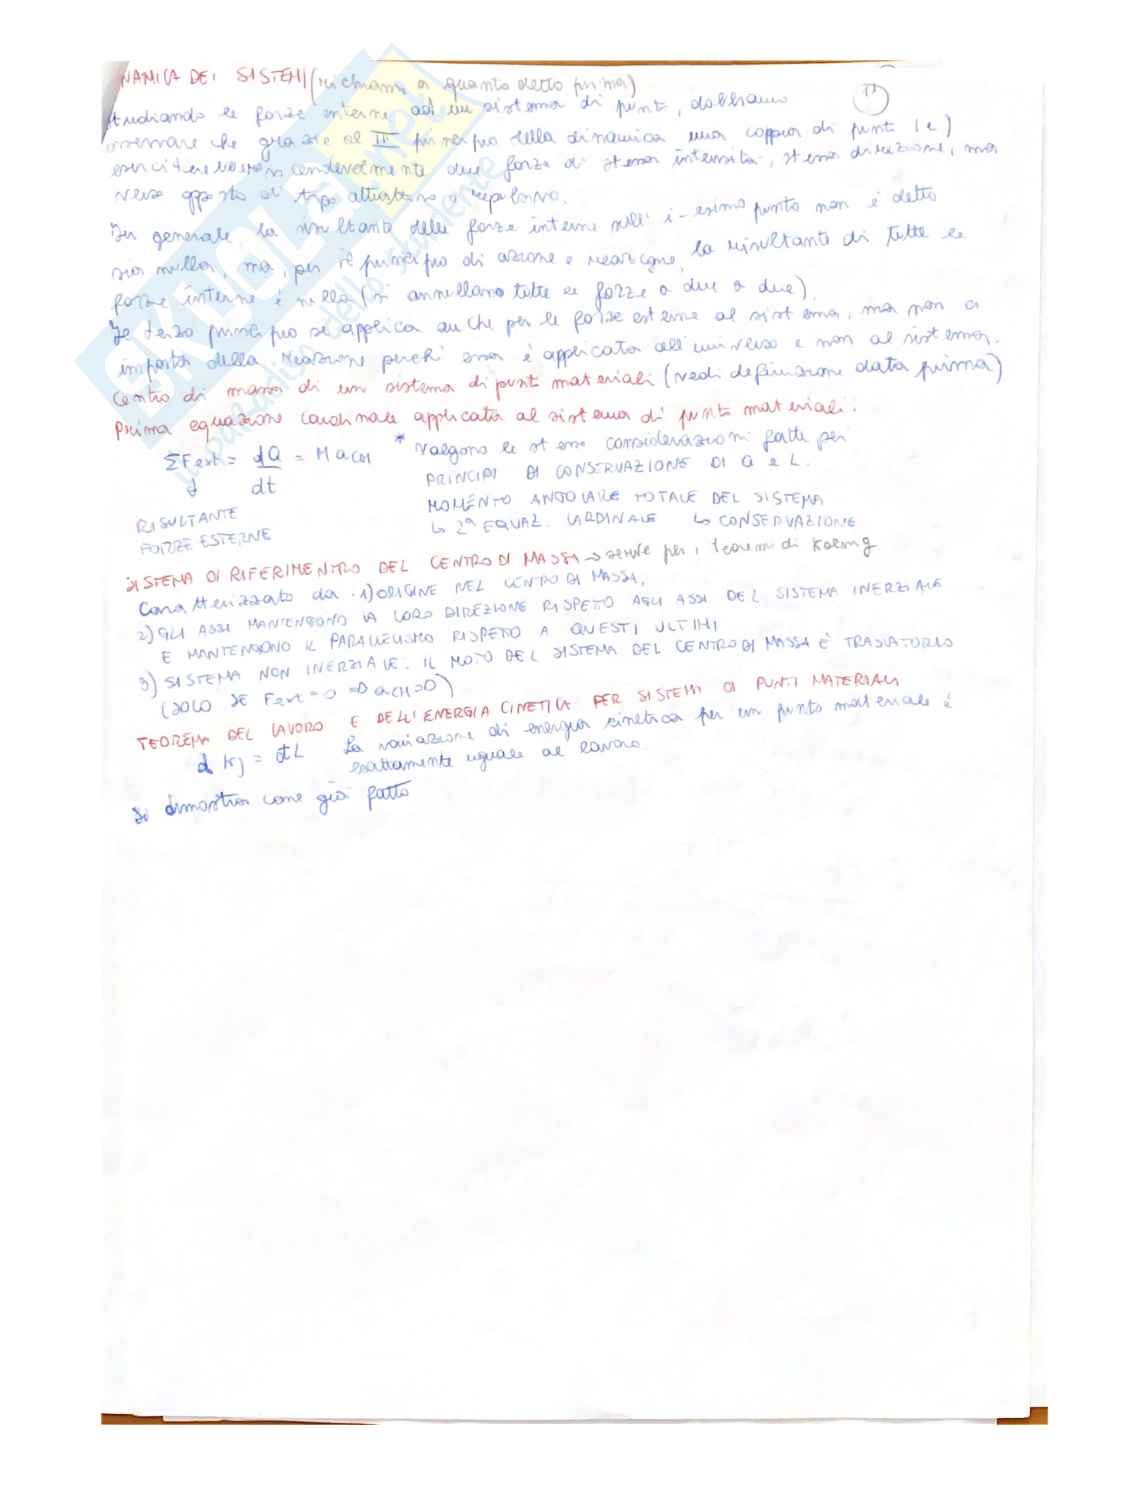 NAMICA DEI SISTEMI (richiami a quanto detto prima)
Studiando le forze interne ad un sistema di punti, dobbiamo
osservare che grazie al III principio della dinamica una coppia di punti
eserciterebbero vicendevolmente due forze di stessa intensità, stessa direzione, ma
verso opposto di tipo attrattivo o repulsivo.
In generale, la risultante delle forze interne sull' i-esimo punto non è detto
sia nulla, ma, per il principio di azione e reazione, la risultante di tutte le
forze interne è nulla (si annullano tutte le forze a due a due).
Il terzo principio si applica anche per le forze esterne al sistema, ma non ci
importa della reazione perché essa è applicata all'universo e non al sistema.
Centro di massa di un sistema di punti materiali (vedi definizione data prima)
Prima equazione cardinale applicata al sistema di punti materiali.
ΣFext = dQ/dt = M aCM
* Valgono le stesse considerazioni fatte per
PRINCIPI DI CONSERVAZIONE DI Q e L.
RISULTANTE
FORZE ESTERNE
MOMENTO ANGOLARE TOTALE DEL SISTEMA
↳ 2ª EQUAZ. CARDINALE ↳ CONSERVAZIONE
SISTEMA DI RIFERIMENTRO DEL CENTRO DI MASSA → serve per i teoremi di Koenig
Caratterizzato da: 1) ORIGINE NEL CENTRO DI MASSA,
2) GLI ASSI MANTENGONO LA LORO DIREZIONE RISPETO AGLI ASSI DEL SISTEMA INERZIALE
E MANTENGONO IL PARALLELISMO RISPETO A QUESTI ULTIMI
3) SISTEMA NON INERZIALE. IL MOTO DEL SISTEMA DEL CENTRO DI MASSA È TRASLATORIO
(SOLO SE Fext = 0 => aCM = 0)
TEOREMA DEL LAVORO E DELL'ENERGIA CINETICA PER SISTEMI DI PUNTI MATERIALI
d Kj = dL La variazione di energia cinetica per un punto materiale è
esattamente uguale al lavoro
Si dimostra come già fatto